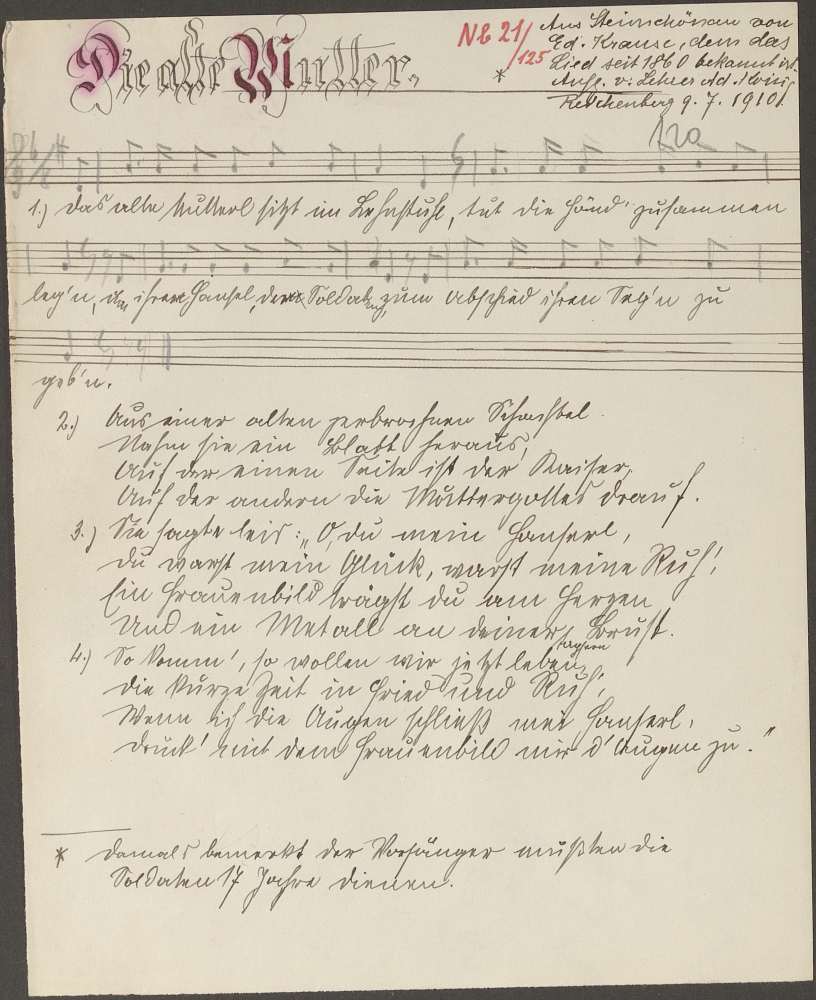 Die alte Mutter.
Nb 21/125
Aus Steinschönau von
Ed. Krause, dem das
Lied seit 1860 bekannt ist.
Aufg. v. Lehrer Ad. König
* Reichenberg 9. 7. 1910.
120
1.) Das alte Mutterl sitzt im Lehnstuhl, tut die Händ' zusammen
leg'n, ihrem Hansel, dem Soldaten, zum Abschied ihren Seg'n zu
geb'n.
2.) Aus einer alten zerbrochnen Schachtel
Nahm sie ein Blatt heraus,
Auf der einen Seite ist der Kaiser,
Auf der andern die Muttergottes drauf.
3.) Sie sagte leis: „O, du mein Hanserl,
Du warst mein Glück, warst meine Ruh',
Ein Frauenbild trägst du am Herzen
Und ein Metall an deiner Brust.
4.) So komm', so wollen wir jetzt leben
Die kurze Zeit in Fried' und Ruh',
Wenn ich die Augen schließ mei Hanserl,
Drück' mit dem Frauenbild mir d' Augen zu."
* Damals bemerkt der Vorsänger mußten die
Soldaten 17 Jahre dienen.